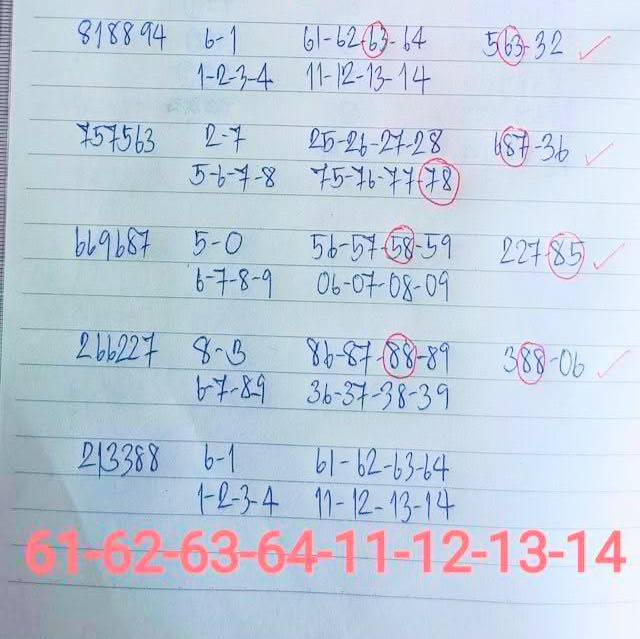 818894 6-1 61-62-63-64 563-32
1-2-3-4 11-12-13-14
757563 2-7 25-26-27-28 687-36
5-6-7-8 75-76-77-78
669687 5-0 56-57-58-59 227-85
6-7-8-9 06-07-08-09
266227 8-3 86-87-88-89 388-06
6-7-89 36-37-38-39
213388 6-1 61-62-63-64
1-2-3-4 11-12-13-14
61-62-63-64-11-12-13-14